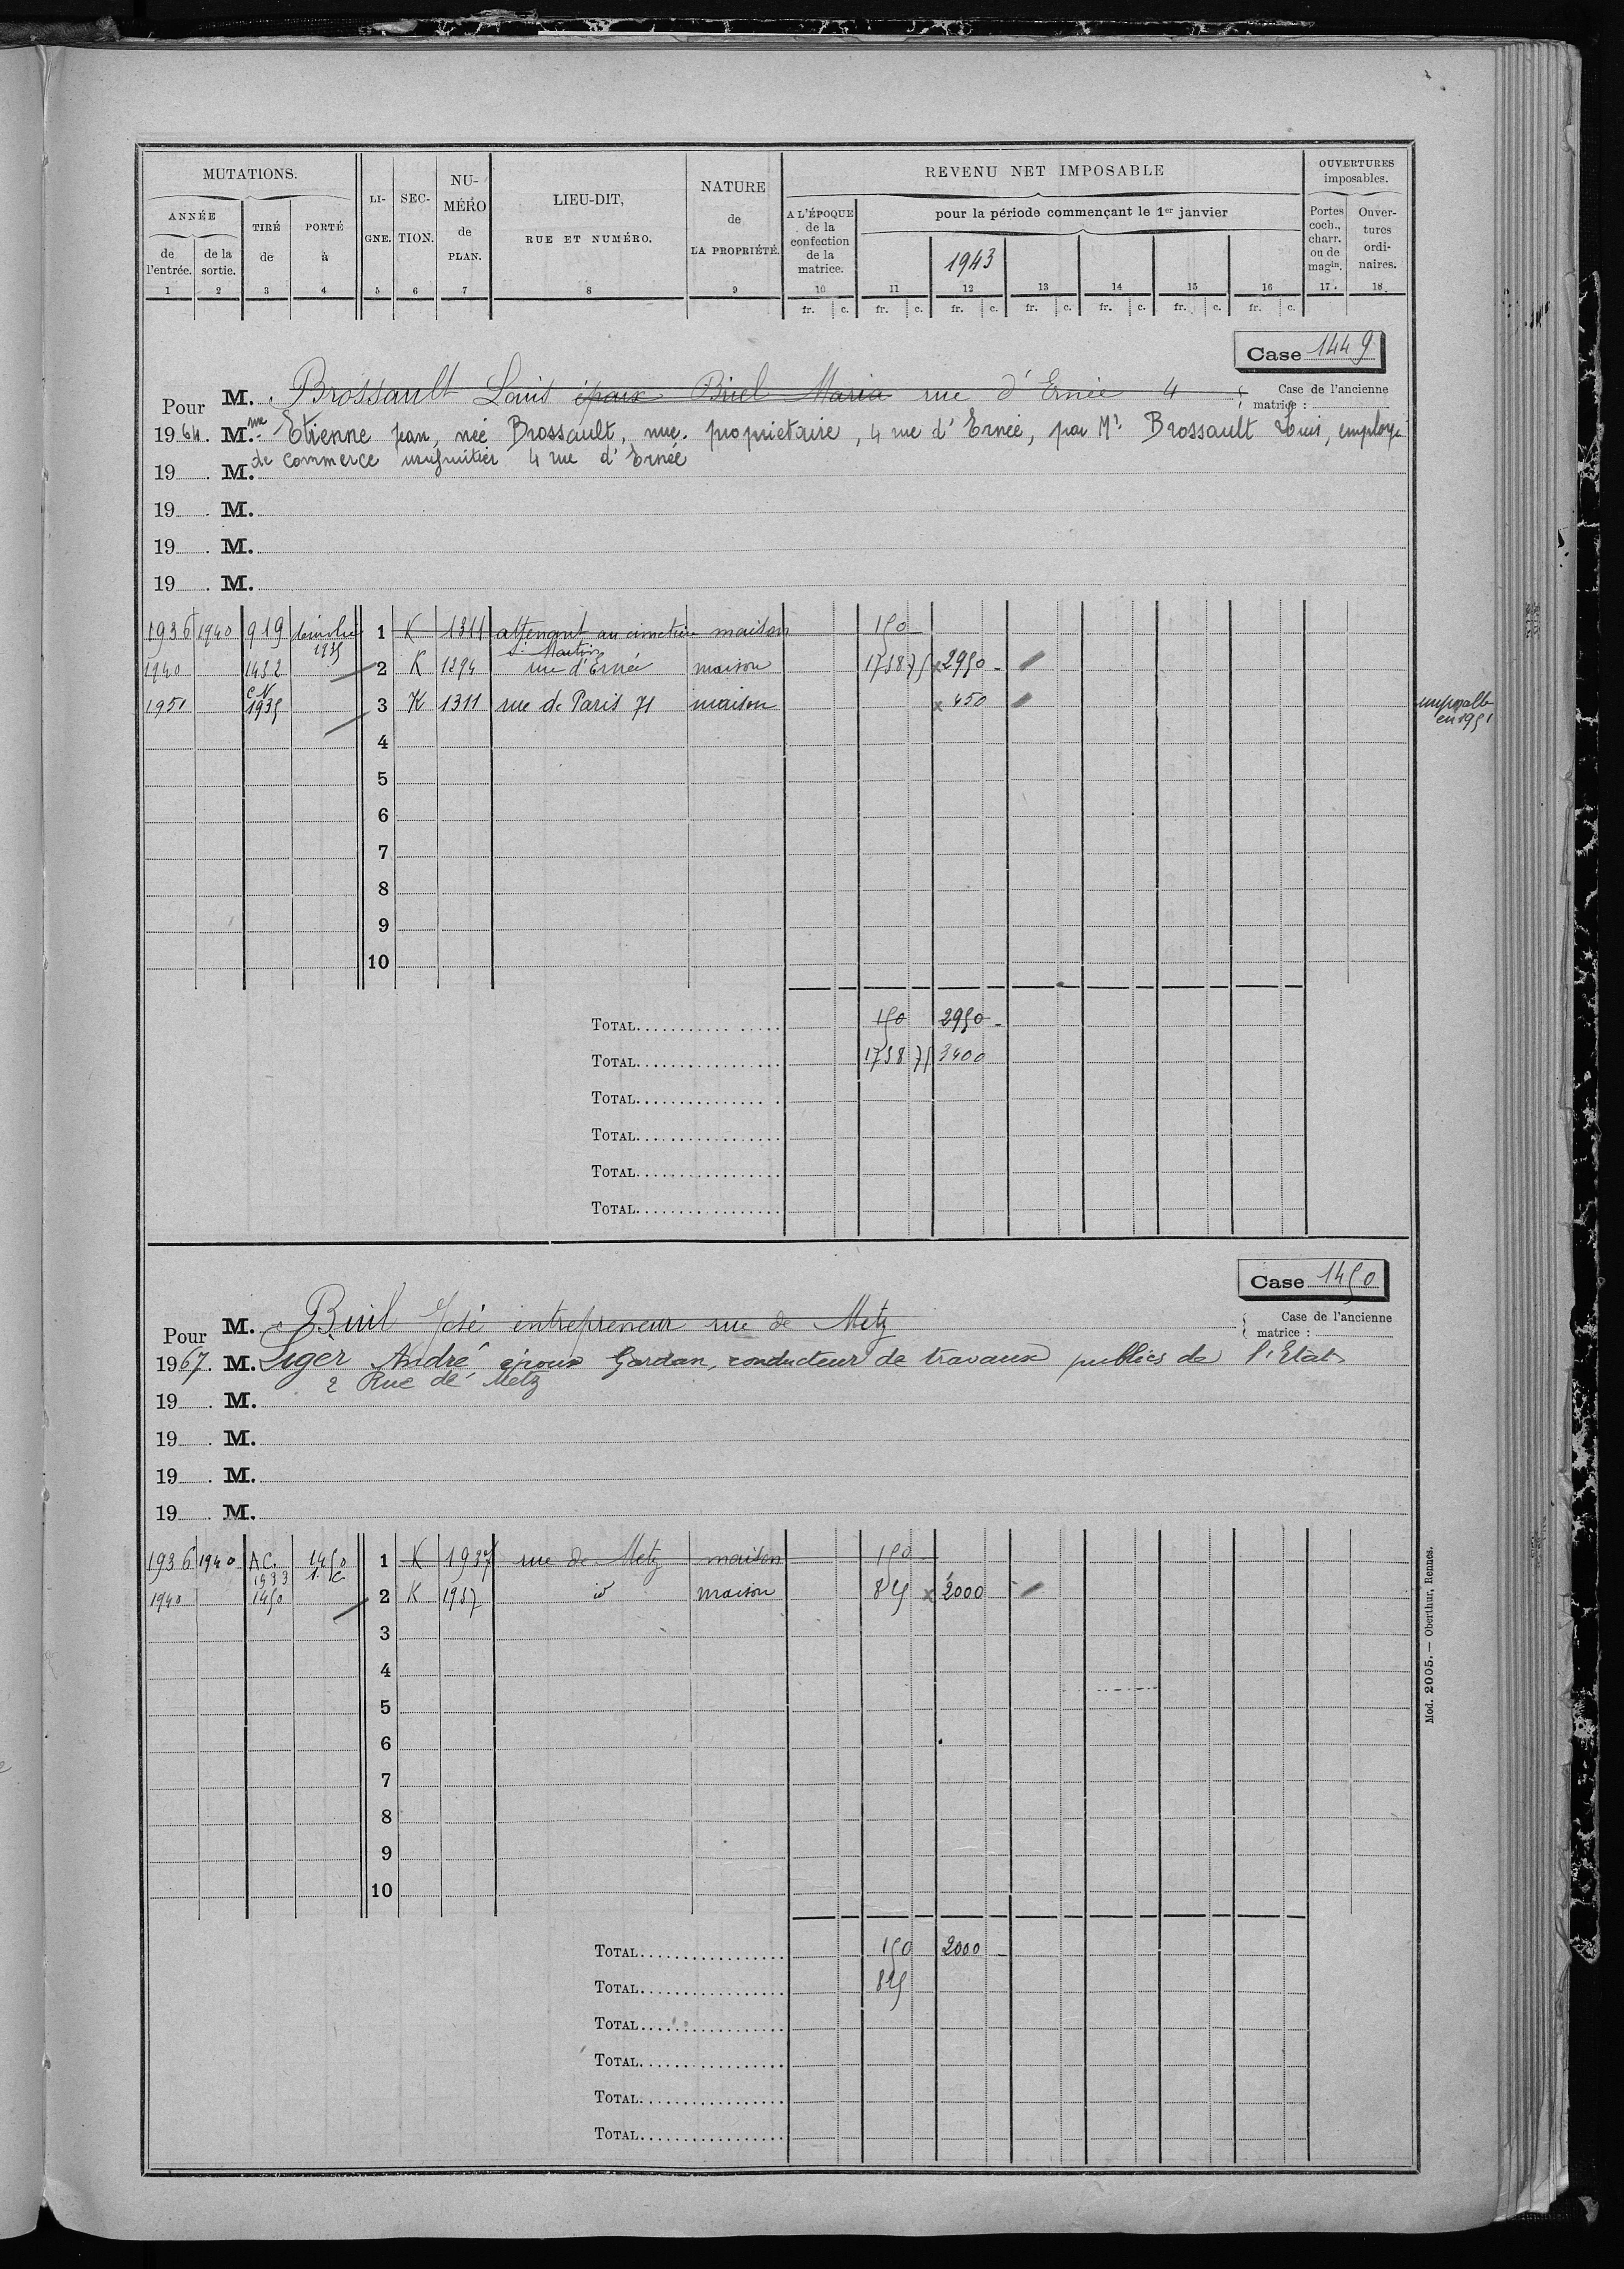 MUTATIONS.
ANNÉE
de l'entrée.
de la sortie.
TIRÉ de
PORTÉ à
LI-GNE.
SEC-TION.
NU-MÉRO de PLAN.
LIEU-DIT, RUE ET NUMÉRO.
NATURE de LA PROPRIÉTÉ.
REVENU NET IMPOSABLE
A L'ÉPOQUE de la confection de la matrice.
pour la période commençant le 1er janvier
1943
OUVERTURES imposables.
Portes coch., charr. ou de magin.
Ouver-tures ordi-naires.
1 2 3 4 5 6 7 8 9 10 11 12 13 14 15 16 17. 18.
fr. c. fr. c. fr. c. fr. c. fr. c. fr. c. fr. c.
Case 1449
Pour M. Brossault Louis époux Briel Maria rue d'Ernée 4
Case de l'ancienne matrice :
1964. Mme Etienne Jean, née Brossault, nue. propriétaire, 4 rue d'Ernée, par Mr Brossault Louis, employé
19 . M. de commerce usufruitier 4 rue d'Ernée
19 . M.
19 . M.
19 . M.
1936 1940 919 démolie 1935 1 K 1311 attenant au cimetière St Martin maison 150
1940 1432 2 K 1294 rue d'Ernée maison 1758 75 x 2950 -
1950 CN 1935 3 K 1311 rue de Paris 71 maison x 450 imposable en 1951
4
5
6
7
8
9
10
TOTAL 150 2950 -
TOTAL 1758 75 3400
TOTAL
TOTAL
TOTAL
TOTAL
Case 1450
Pour M. Buil José entrepreneur rue de Metz
Case de l'ancienne matrice :
1967. M. Liger André époux Gardan, conducteur de travaux publics de l'Etat
2 Rue de Metz
19 . M.
19 . M.
19 . M.
19 . M.
1936 1940 A.C. 1933 1450 1 K 1937 rue de Metz maison 150
1940 1450 2 K 1937 id maison 825 x 2000 -
3
4
5
6
7
8
9
10
TOTAL 150 2000 -
TOTAL 825
TOTAL
TOTAL
TOTAL
TOTAL
Mod. 2005. — Oberthur, Rennes.